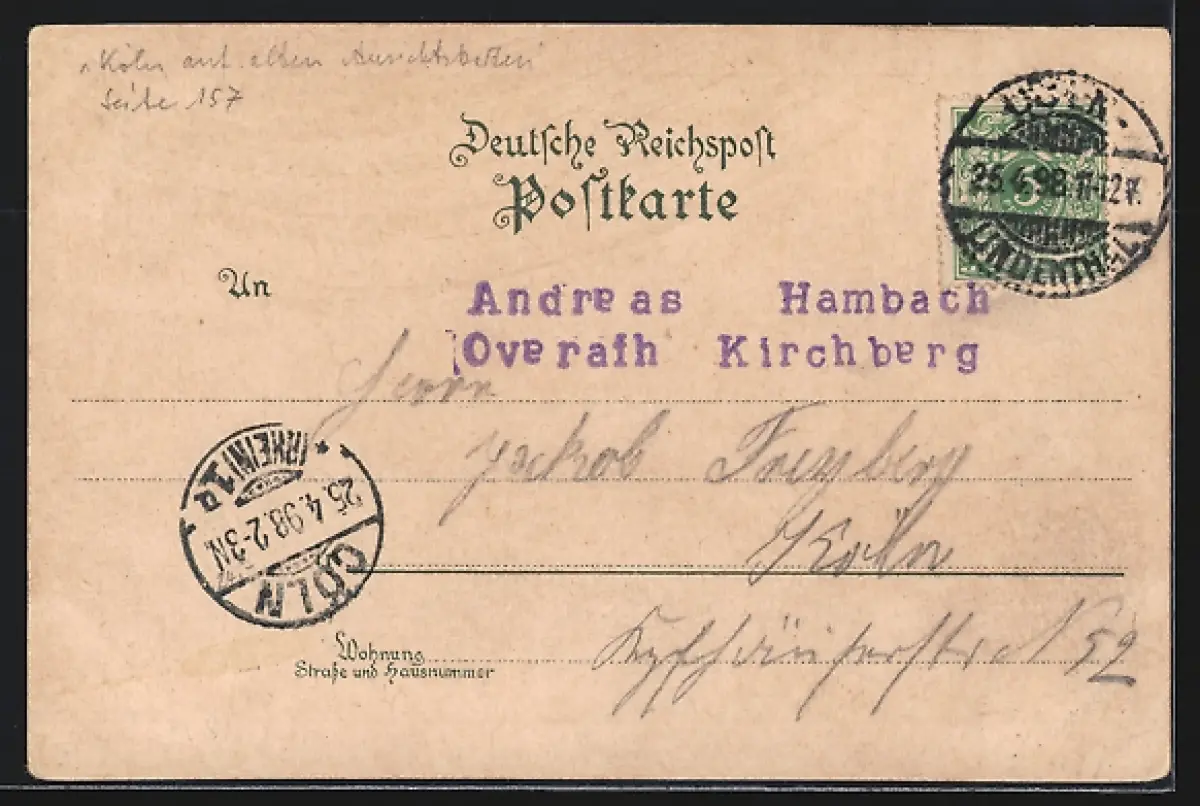 "Köln auf alten Ansichtskarten"
Seite 157
Deutsche Reichspost
Postkarte
CÖLN-
25.4.98.11-12V.
LINDENTHAL
5
An
Andreas Hambach
Overath Kirchberg
Herrn
Jakob
Köln
(RHEIN) 1
25.4.98.2-3N.
CÖLN
Wohnung
Straße und Hausnummer
Kyffhäuserstr. N 52